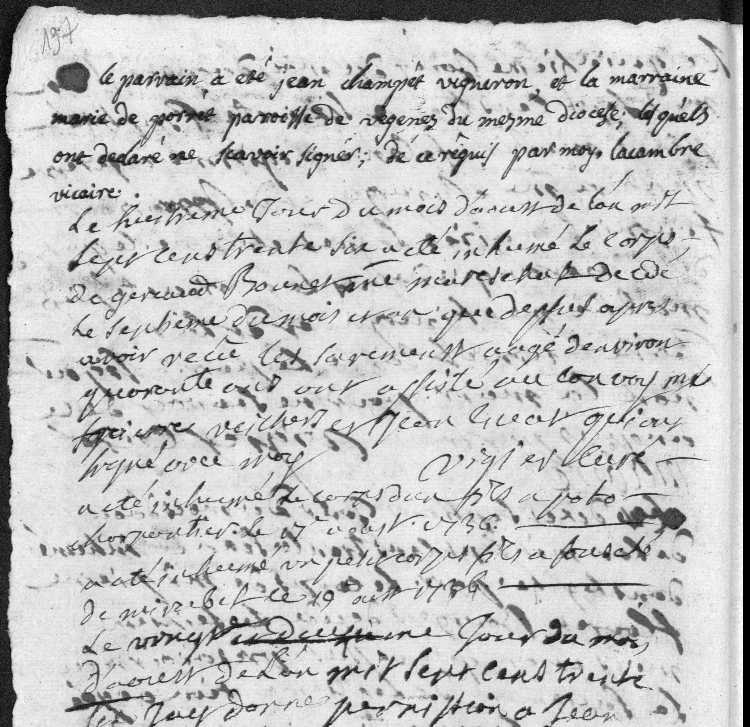 197
le parrain a eté jean champét vigneron, et la marraine
marie de porret paroisse de vegenes du mesme diocese lesquels
ont declaré ne scavoir signer; de ce requis par moy. lacambre
vicaire.
Le huitieme Jour du mois d'aoust de l'an mil
sept cens trente six a eté inhumé Le corps
de geraud Bounet me mareschal decedé
Le septieme du mois et an que dessus apres
avoir recu les sacremens agé d'environ
quarante ans ont assisté au convoy me
et Jean qui ont
signé avec moy Vigier curé
a eté inhumé le corps d'un fils a
charpentier le 17e aoust 1736
a eté inhumé un petit corps fils a
de mirabel le 19e aout 1736
Le vingt Jour du mois
d'aoust de l'an mil sept cens trente
six Jay donné permission a Jean